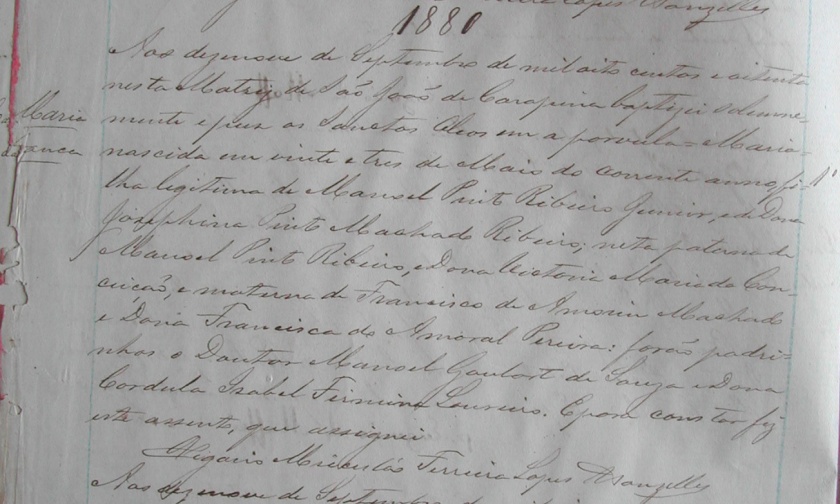 Lopes
1880
Aos dezenove de Septembro de mil oito centos e oitenta
nesta Matriz de São João de Carapina baptizei solemne-
mente e puz os Sanctos Oleos em a parvula = Maria =
nascida em vinte e tres de Maio do corrente anno, fi-
lha legitima de Manoel Pinto Ribeiro Junior, e de Dona
Jozephina Pinto Machado Ribeiro; neta paterna de
Manoel Pinto Ribeiro, e Dona Victoria Maria da Con-
ceição, e materna de Francisco de Amorim Machado
e Dona Francisca do Amaral Pereira: forão padri-
nhos o Doutor Manoel Goulart de Souza e Dona
Cordula Isabel Firmina Loureiro. E para constar fiz
este assento, que assignei
Vigario Miceslás Ferreira Lopes Wanzelles
Aos dezenove de Septembro de
Maria
branca